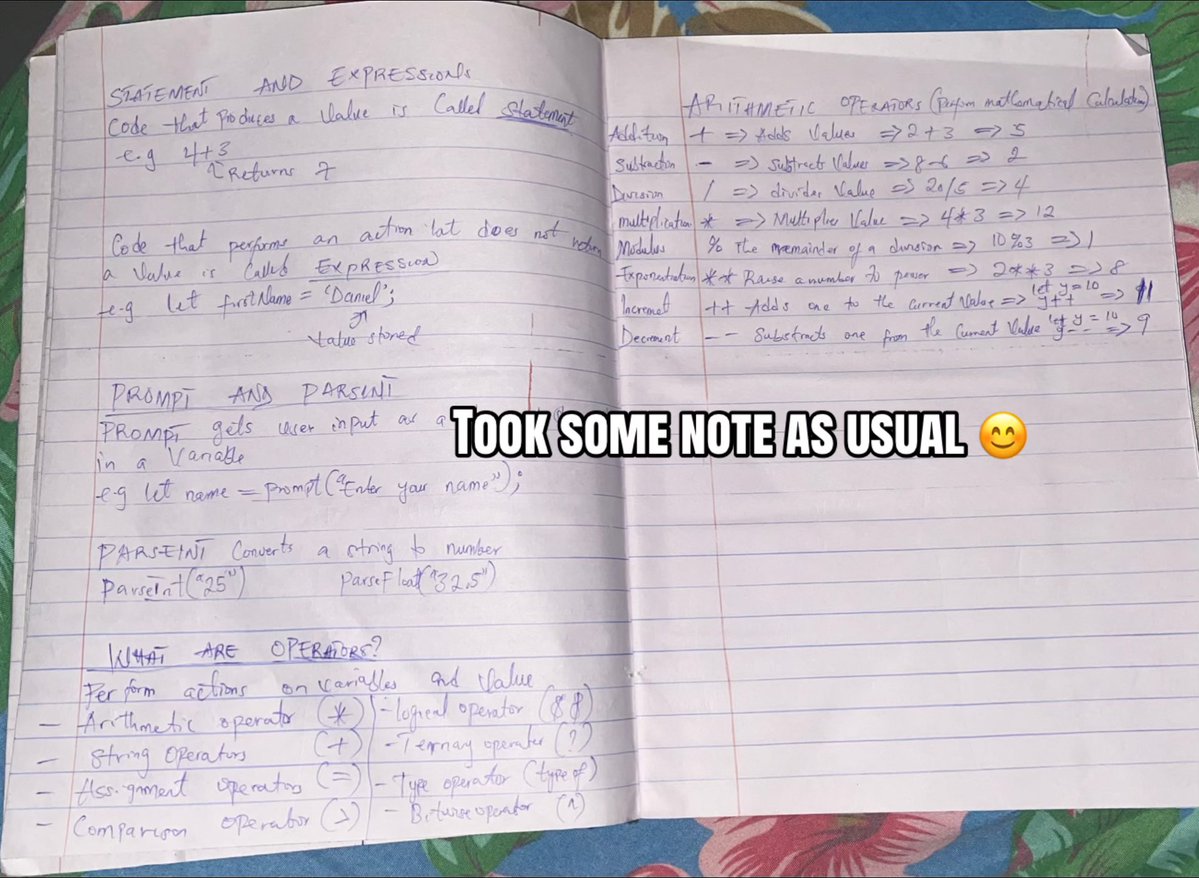 STATEMENT AND EXPRESSIONS
Code that Produces a Value is Called Statement
e.g 4+3
Returns 7
Code that performs an action that does not return
a Value is Called EXPRESSION
e-g let firstName = 'Daniel';
Value stored
PROMPT AND PARSEINT
PROMPT gets user input as a
in a Variable
e-g let name = prompt("Enter your name");
PARSEINT Converts a string to number
ParseInt("25") ParseFloat("32.5")
WHAT ARE OPERATORS?
Perform actions on variables and Value
- Arithmetic operator (*) - Logical operator (&&)
- String Operators (+) - Ternary operator (?)
- Assignment operators (=) - Type operator (type of)
- Comparison operator (>) - Bitwise operator (^)
ARITHMETIC OPERATORS (perform mathematical Calculation)
Addition + => Adds Values => 2+3 => 5
Subtraction - => subtracts Values => 8-6 => 2
Division / => divides Value => 20/5 => 4
multiplication * => Multiplies Value => 4*3 => 12
Modulus % The remainder of a division => 10%3 => 1
Exponentiation ** Raise a number to power => 2**3 => 8
Increment ++ Adds one to the current Value => let y=10 y++ => 11
Decrement -- Substracts one from the Current Value let y = 10 y-- => 9
TOOK SOME NOTE AS USUAL 😊